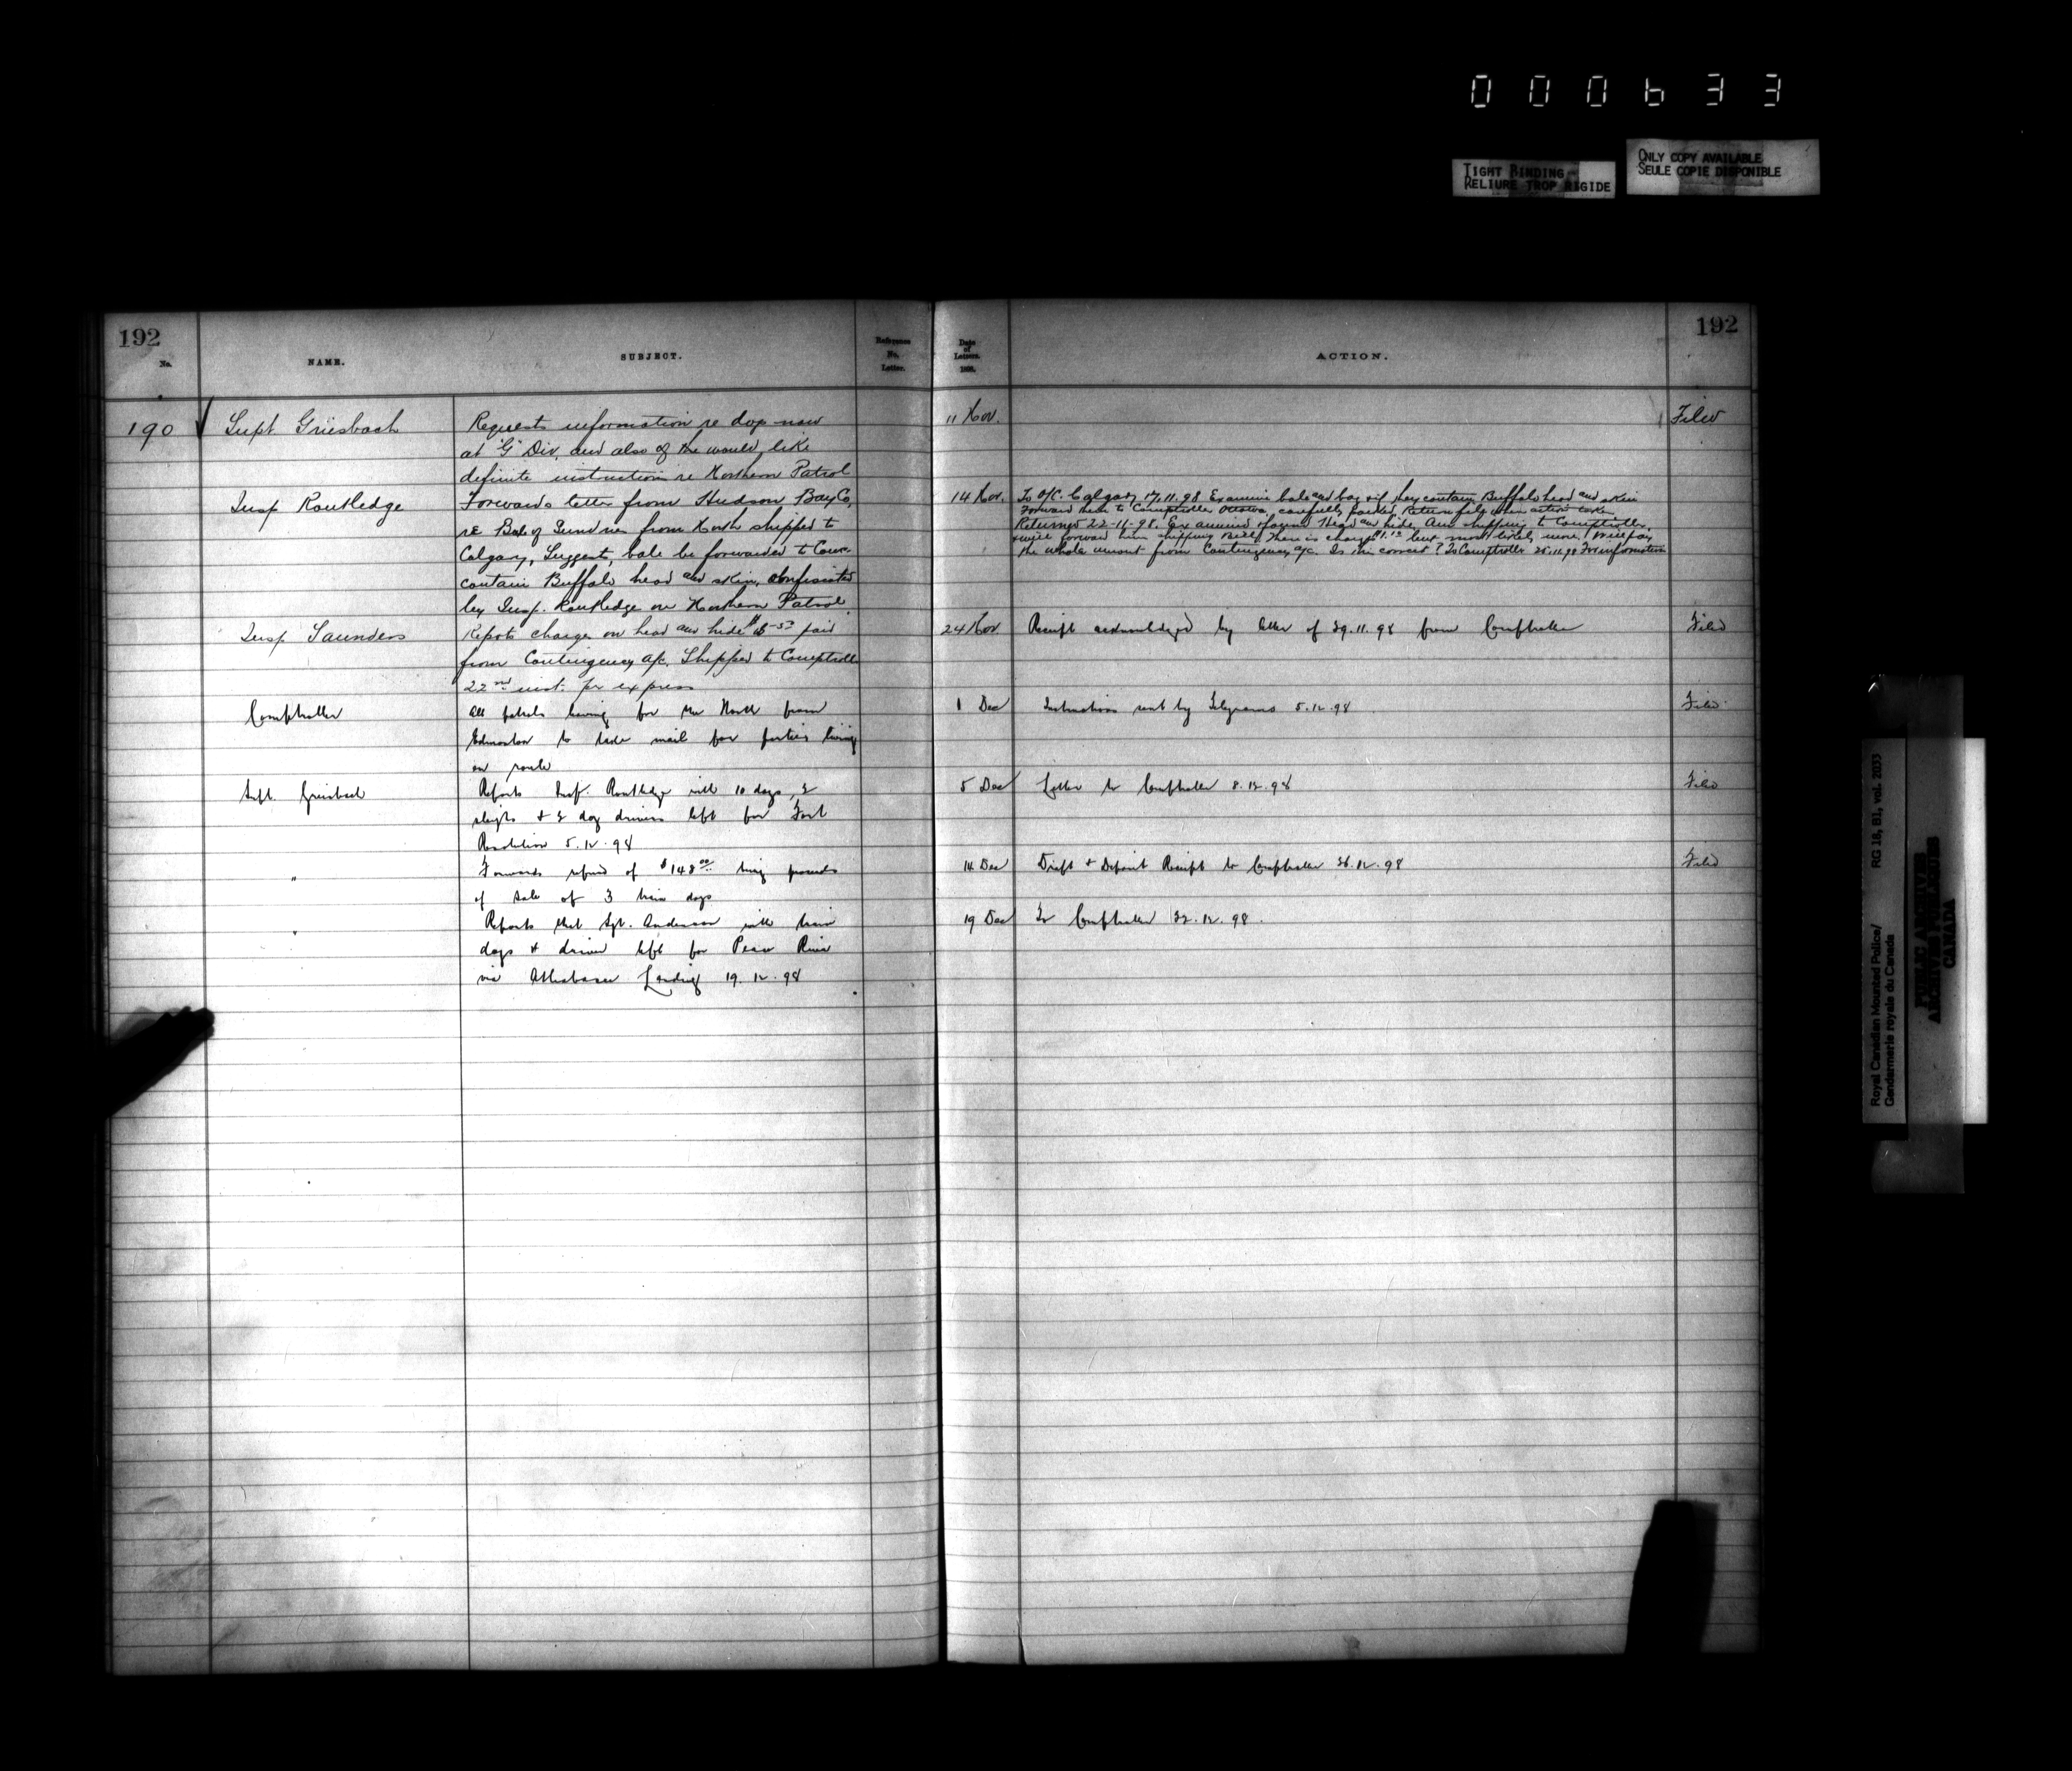 000633
TIGHT BINDING
RELIURE TROP RIGIDE
ONLY COPY AVAILABLE
SEULE COPIE DISPONIBLE
192
No.
NAME.
SUBJECT.
Reference
No.
Letter.
Date
of
Letters.
1898.
ACTION.
192
190 Supt Griesbach
Requests information re dogs now
at "G" Div, and also of the would like
definite instructions re Northern Patrol
11 Nov.
Filed
Insp Routledge
Forwards letter from Hudson Bay Co,
re Bale of Sundries from North shipped to
Calgary, Suggests bale be forwarded to Com
contain Buffalo head and skin, confiscated
by Insp. Routledge on Northern Patrol.
14 Nov.
To O/C. Calgary 17.11.98 Examine bale and bag & if they contain Buffalo head and skin
Forward them to Comptroller Ottawa, carefully packed Return file when action taken
Returned 22-11-98. Examined & found Head and hide, Am shipping to Comptroller,
& will forward him shipping Bill, There is charge but most likely more, I will pay
the whole amount from Contingency a/c. Is this correct? To Comptroller 25.11.98 For information
Insp Saunders
Repots charges on head and hide paid
from Contingency a/c. Shipped to Comptroller
22nd inst. per express
24 Nov
Receipt acknowledged by letter of 29.11.98 from Comptroller
Filed
Comptroller
All patrols leaving for the North from
Edmonton to take mail for parties living
on route
1 Dec
Instructions sent by Telegrams 5.12.98
Filed
Supt. Griesbach
Reports Insp. Routledge with 10 dogs, 2
sleighs & 2 dog drivers left for Fort
Resolution 5.12.98
5 Dec
Letter to Comptroller 8.12.98
Filed
"
Forwards refund of $148.00 being proceeds
of sale of 3 train dogs
14 Dec
Draft & Deposit Receipt to Comptroller 26.12.98
Filed
"
Reports that Sgt. Anderson with train
dogs & driver left for Peace River
via Athabasca Landing 19.12.98
19 Dec
To Comptroller 22.12.98.
Royal Canadian Mounted Police/
Gendarmerie royale du Canada
RG 18, B1, vol. 2033
PUBLIC ARCHIVES
ARCHIVES PUBLIQUES
CANADA